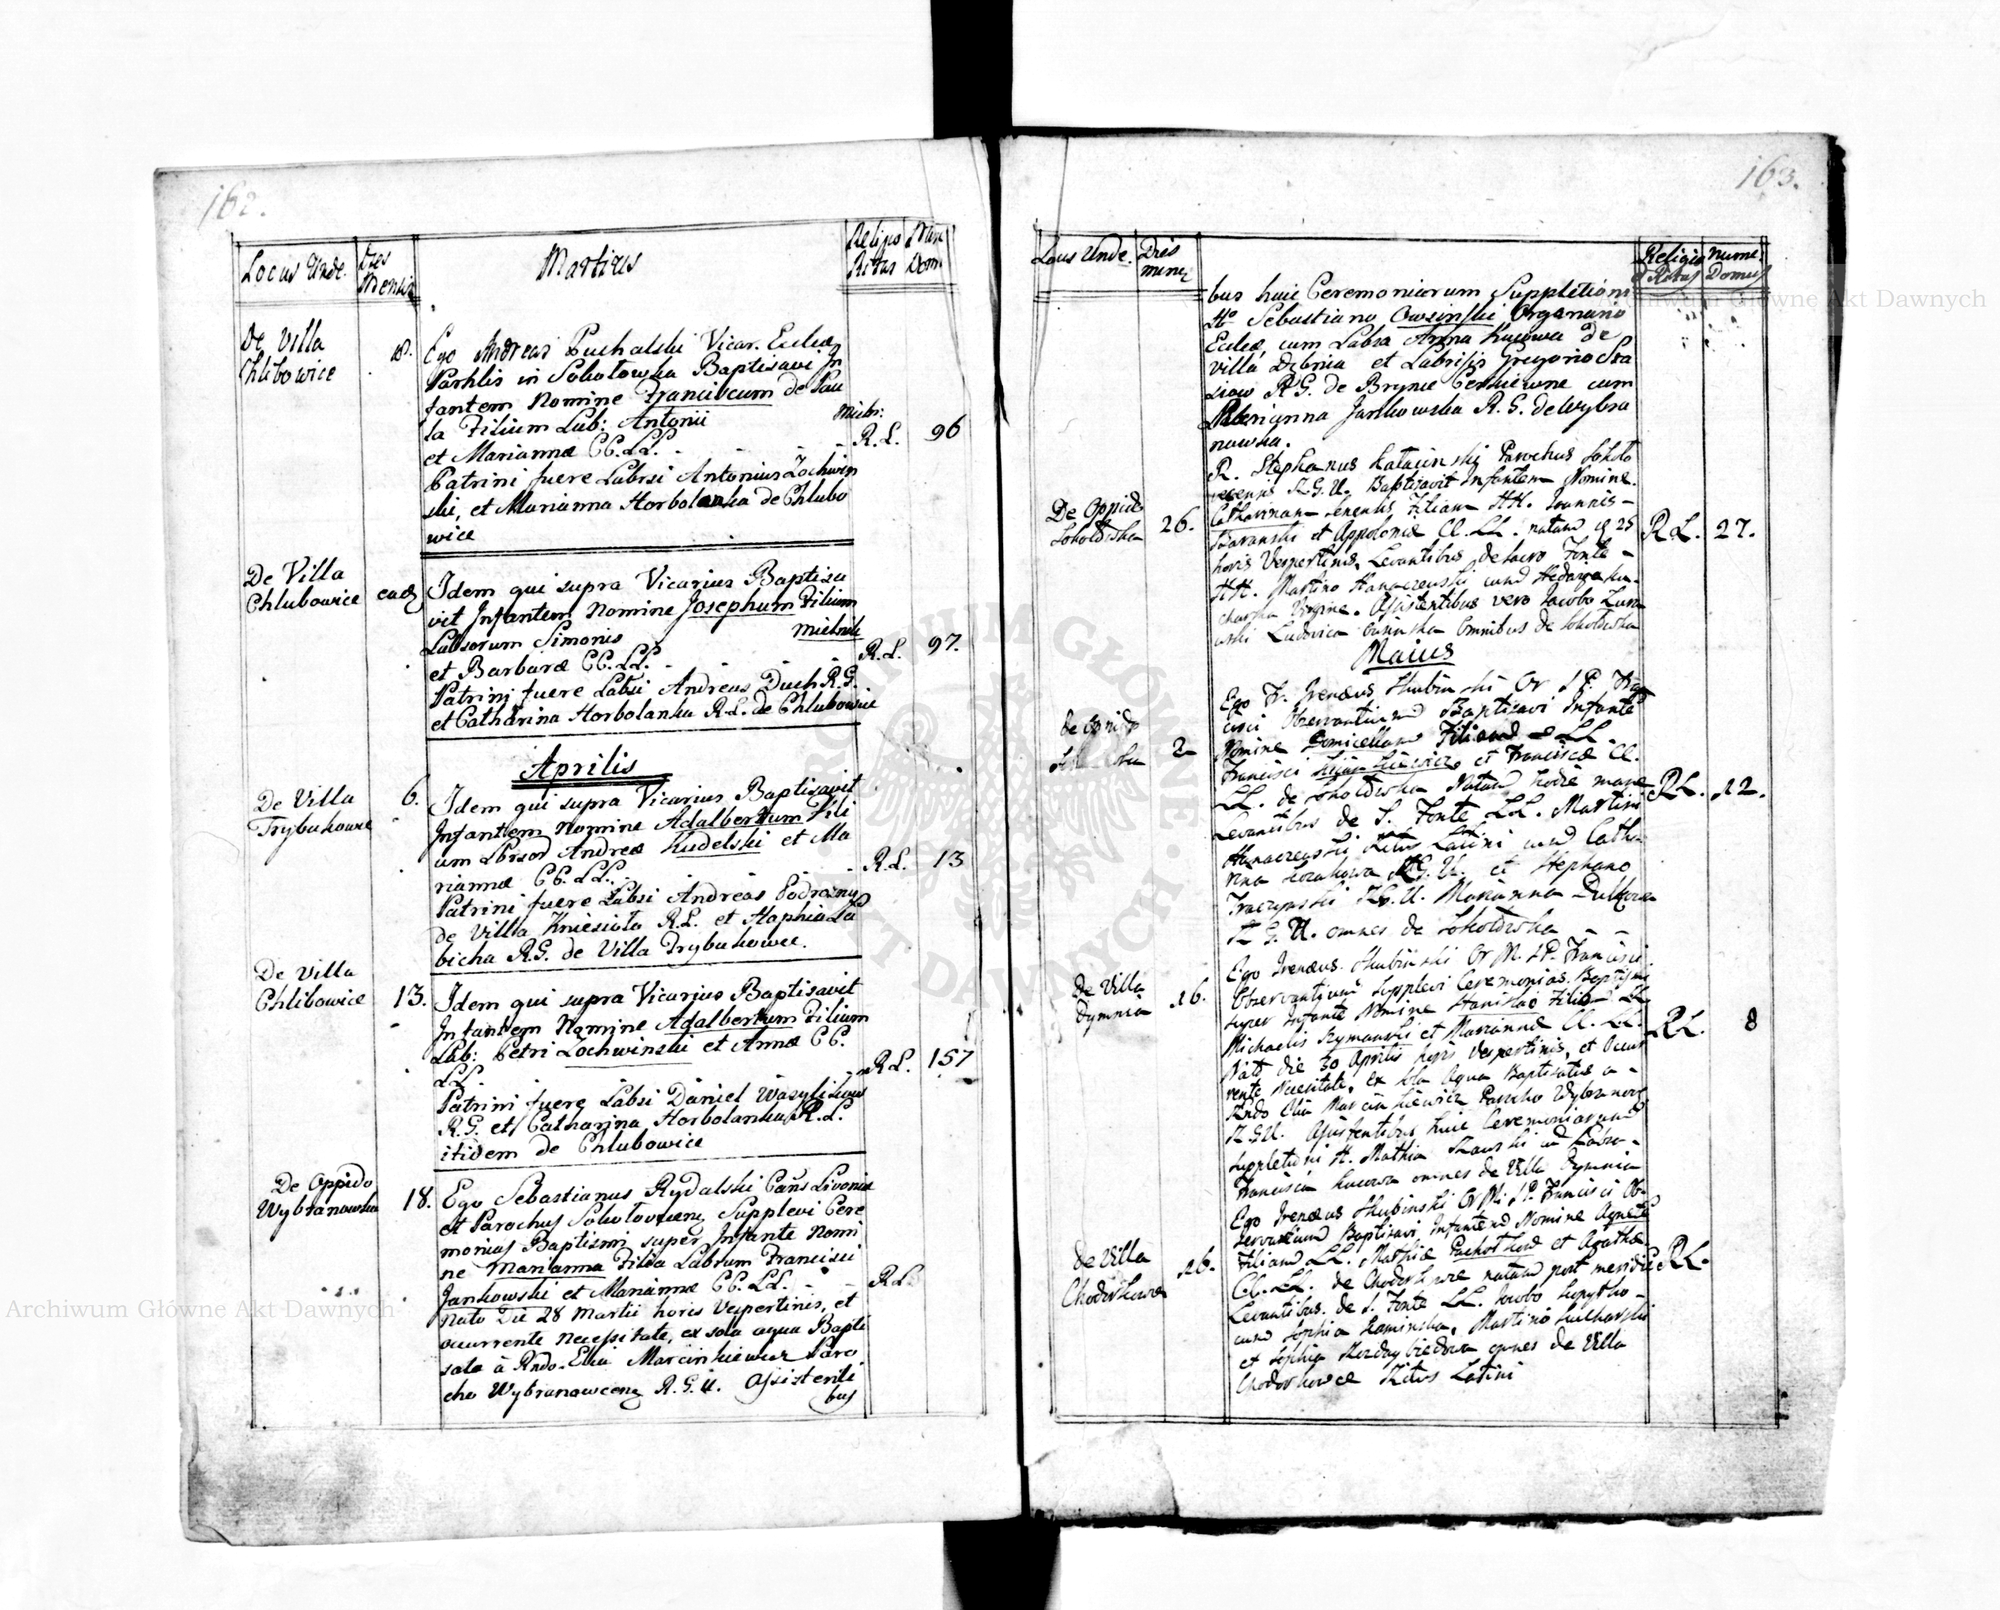 162.
Locus Unde.
Dies Mensis
Martius
Religio Ritus
Num Dom
De Villa
Chlibowice
18.
Ego Andreas Puchalski Vicar. Eccliæ
Parhlis in Sokolowka Baptisavi In
fantem Nomine Franciscum de Pau
la Filium Lab: Antonii Mieln:
et Mariannæ CC.LL.
R.L. 96
Patrini fuere Labrsi Antonius Zochwin
ski, et Marianna Horbolanka de Chlubo
wice
De Villa
Chlubowice
ead
Idem qui supra Vicarius Baptisa
vit Infantem Nomine Josephum Filium
Labsorum Simonis Mielnik
et Barbaræ CC.LL.
R.L. 97.
Patrini fuere Labsi Andreas Duch R.G.
et Catharina Horbolanka R.L. de Chlubowice
Aprilis
De Villa
Trybukowce
6.
Idem qui supra Vicarius Baptisavit
Infantem Nomine Adalbertum Fili
um Lbrsor Andreæ Kudelski et Ma
riannæ CC.LL.
R.L. 13
Patrini fuere Labsi Andreas
de Villa Kniesioło R.L. et Haphia Ba
bicha R.G. de Villa Trybukowce.
De Villa
Chlibowice
13.
Idem qui supra Vicarius Baptisavit
Infantem Nomine Adalbertum Filium
Lab: Petri Zochwinski et Annæ CC.
LL.
R.L. 157
Patrini fuere Labsi Daniel Wasylikow
R.G. et Catharina Horbolanka R.L.
itidem de Chlubowice
De Oppido
Wybranowka
18.
Ego Sebastianus Rydalski Cans Livoniæ
et Parochus Sokolovcens Supplevi Cere
monias Baptismi super Infante Nomi
ne Marianna Filia Labrum Francisci
Jankowski et Mariannæ CC.LL.
R.L.
Nata Die 28 Martii horis Vespertinis, et
ocurrente necessitate, ex sola aqua Bapti
sata à Rndo. Elia Marcinkiewicz Paro
cho Wybranowcens R.G.U. Assistenti
bus
163.
Locus Unde.
Dies
Religio et Ritus
Nume. Domus
bus huic Ceremoniarum Suppletioni
Hº Sebastiano Owsinski Organario
Eccliæ, cum Labsa Anna Kucowa de
villa Dębnia et Labrisis Gregorio Sta
siow R.G. de Brynce Cerkiewne cum
Marianna Jankowska R.G. de Wybra
nowka.
De Oppido
Sokolowka
26.
R. Stephanus Parochus Sokolo
vecensis R.G.U. Baptisavit Infantem Nomine
Catharinam Filiam HH. Joannis
Baranski et Appoloniæ CC.LL. natam 25
horis Vespertinis, Levantibus de sacro Fonte
HH. Martino Hanaczewski cum
Virgine. Assistentibus vero Jacobo
Ludovica Omnibus de Sokolowka
R.L. 27.
Maius
De Oppido
2
Ego Fr. Irenæus Skubinski Or S.P. Fran
cisci Observantium Baptisavi Infantem
Nomine Domicellam Filiam LL.
Francisci et Franciscæ CC.
LL. de Sokolowka Natam hodie mane
Levantibus de S. Fonte LL. Martino
Hanaczewski Ritus Latini cum Catha
rina R.G.U. et Stephano
R.G.U. Marianna
R.G.U. omnes de Sokolowka
RL. 12.
De Villa
Dymnia
16.
Ego Irenæus Skubinski Or M. S.P. Francisci
Observantium Supplevi Ceremonias Baptismi
super Infante Nomine Stanislao Filio LL.
Michaelis Szymanski et Mariannæ CC.LL.
Nato die 30 Aprilis horis Vespertinis, et Occur
rente Necesitate, ex sola Aqua Baptisatus a
Rndo Elia Marcinkiewicz Parocho Wybranows
R.G.U. Assistentibus huic Ceremoniarum
Suppletioni H. Mathia cum Labsa
Francisca Kucowa omnes de Villa Dymnia
RL. 8
De Villa
Chodorkowce
16.
Ego Irenæus Skubinski Or M. S.P. Francisci Ob
servantium Baptisavi Infantem Nomine Agnetem
Filiam LL. Mathiæ et Agathæ
CC.LL. de Chodorkowce natam post meridiem
Levantibus de S. Fonte LL. Jacobo
cum Sophia Kaminska, Martino
et Sophia omnes de Villa
Chodorkowce Ritus Latini
RL.
Archiwum Główne Akt Dawnych
Archiwum Główne Akt Dawnych
ARCHIWUM GŁÓWNE AKT DAWNYCH